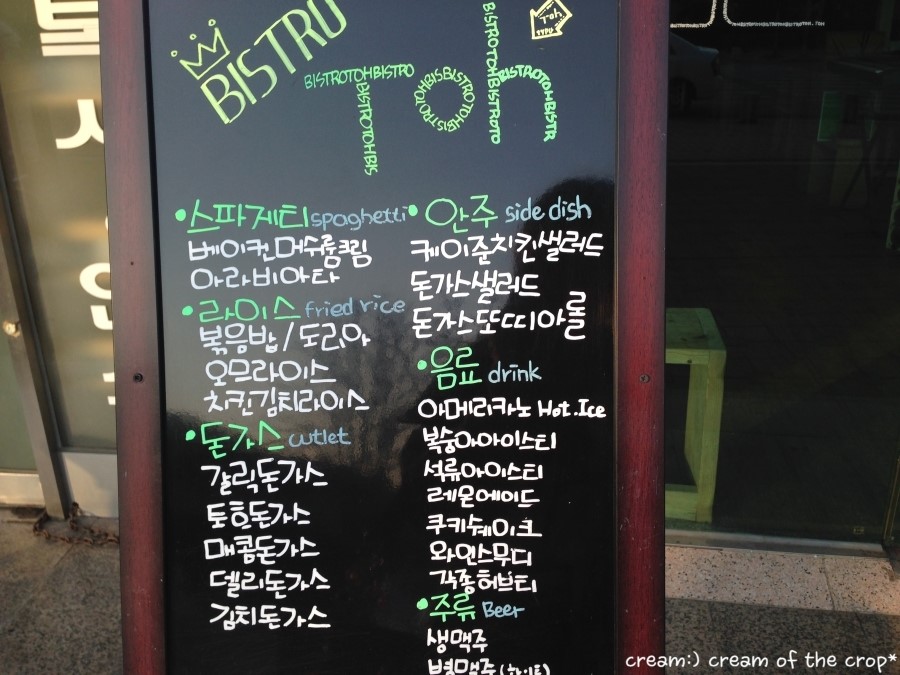 BISTRO
Toh
스파게티 spaghetti
베이컨머쉬룸크림
아라비아타
라이스 fried rice
볶음밥/도리아
오므라이스
치킨김치라이스
돈가스 cutlet
갈릭돈가스
토흐돈가스
매콤돈가스
델리돈가스
김치돈가스
안주 side dish
케이준치킨샐러드
돈가스샐러드
돈가스또띠아롤
음료 drink
아메리카노 Hot.Ice
복숭아아이스티
석류아이스티
레몬에이드
쿠키쉐이크
와인스무디
각종허브티
주류 Beer
생맥주
병맥주(하이트)
cream:) cream of the crop*